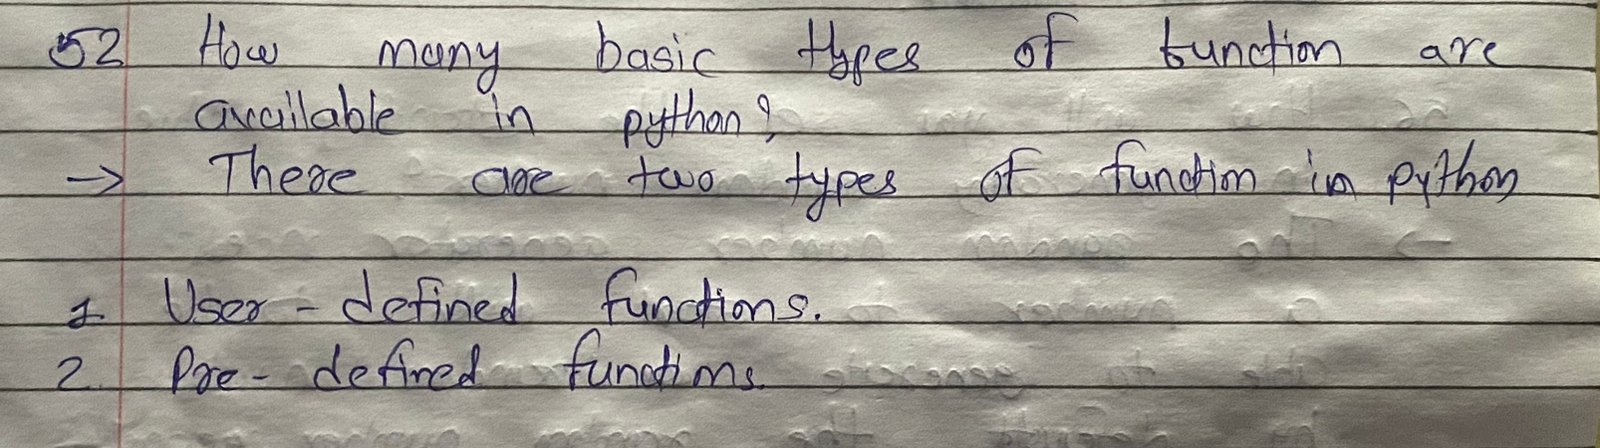 52 How many basic types of function are
available in python?
→ There are two types of function in python
1. User-defined functions.
2. Pre-defined functions.